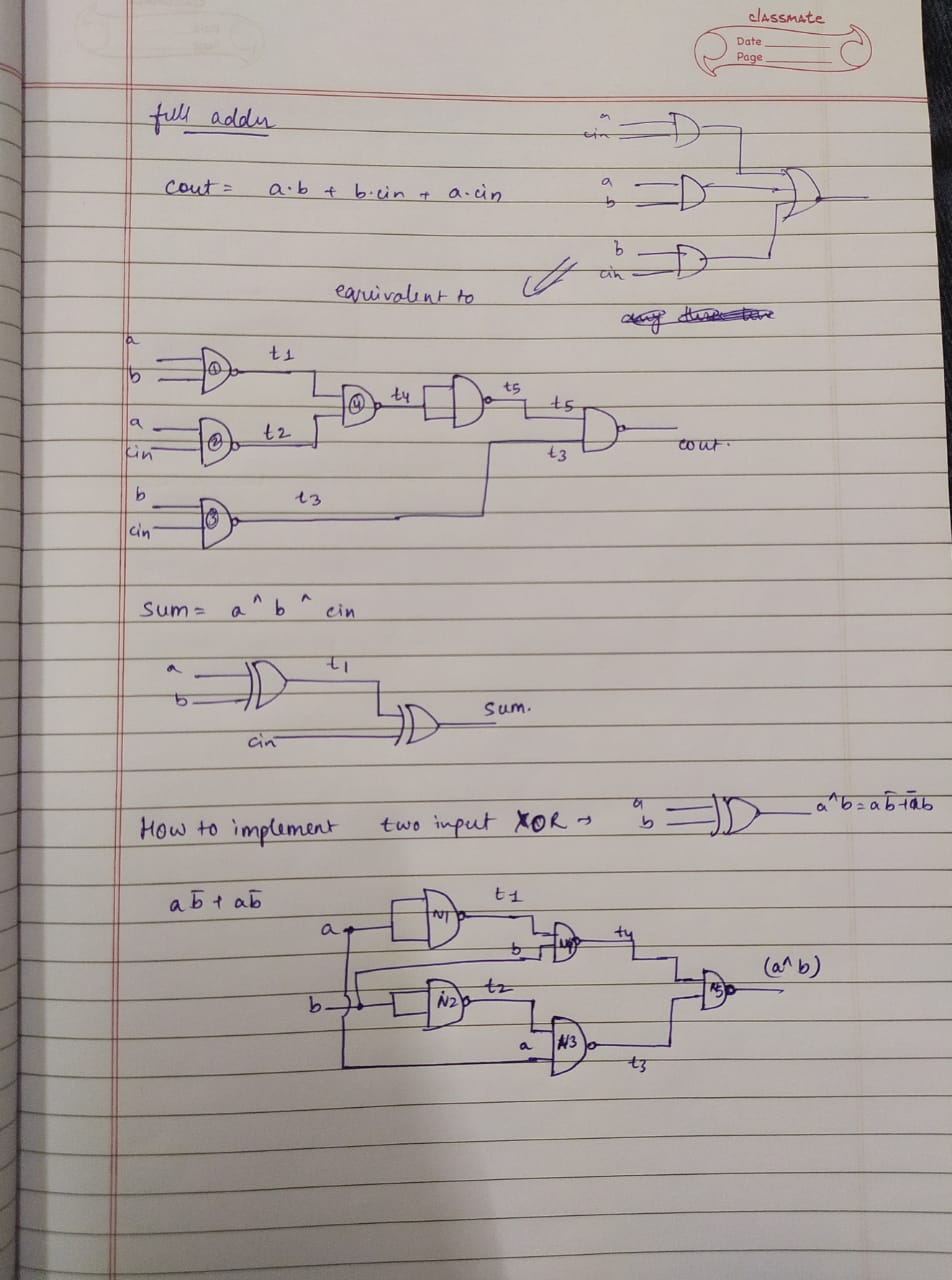 classmate
Date
Page
full adder
a
cin
cout = a·b + b·cin + a·cin
a
b
b
cin
equivalent to
a
b
1
t1
4
t4
t5
t5
a
cin
2
t2
t3
cout.
b
cin
3
t3
Sum = a ^ b ^ cin
a
b
t1
cin
Sum.
How to implement two input XOR →
a
b
a^b = ab̅ + a̅b
ab̅ + ab̅
a
N1
t1
b
N4
t4
(a^b)
b
N2
t2
N5
a
N3
t3